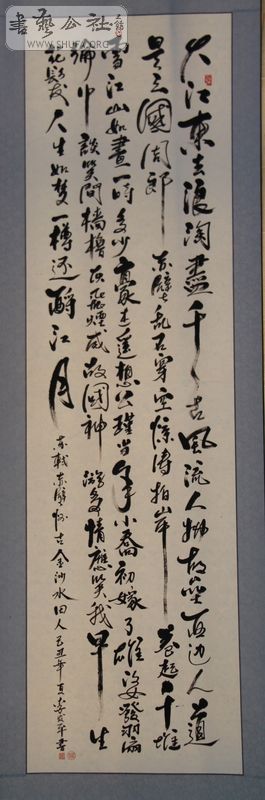 書藝公社
WWW.SHUFA.ORG
大江東去浪淘盡千古風流人物故壘西边人道
是三國周郎赤壁乱石穿空惊濤拍岸卷起千堆
雪江山如畫一時多少豪杰遥想公瑾當年小喬初嫁了雄姿發羽扇
綸巾談笑間檣櫓灰飛煙滅故國神游多情應笑我早生
花髮人生如夢一樽還酹江月
蘇軾赤壁怀古金沙水田人己丑年夏